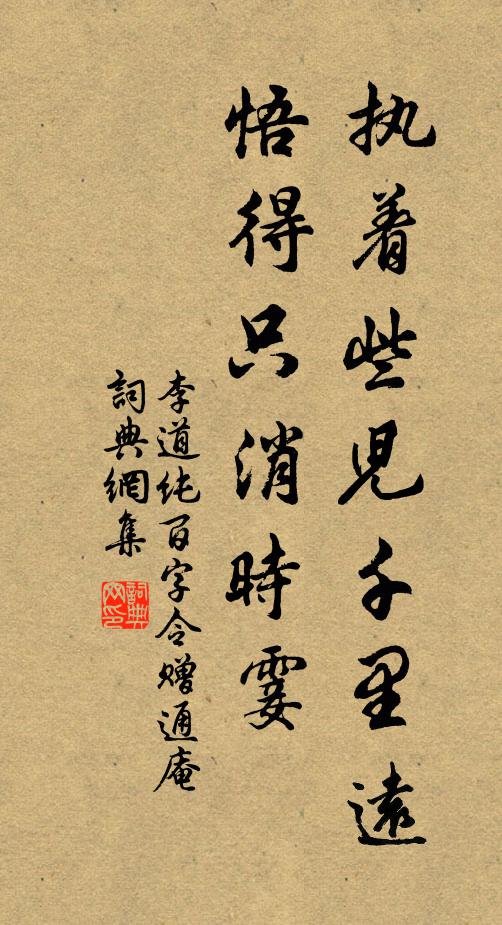 执着些児千里遠
悟得只消時霎
李道纯百字令赠通庵
詞典網集
詞典网印